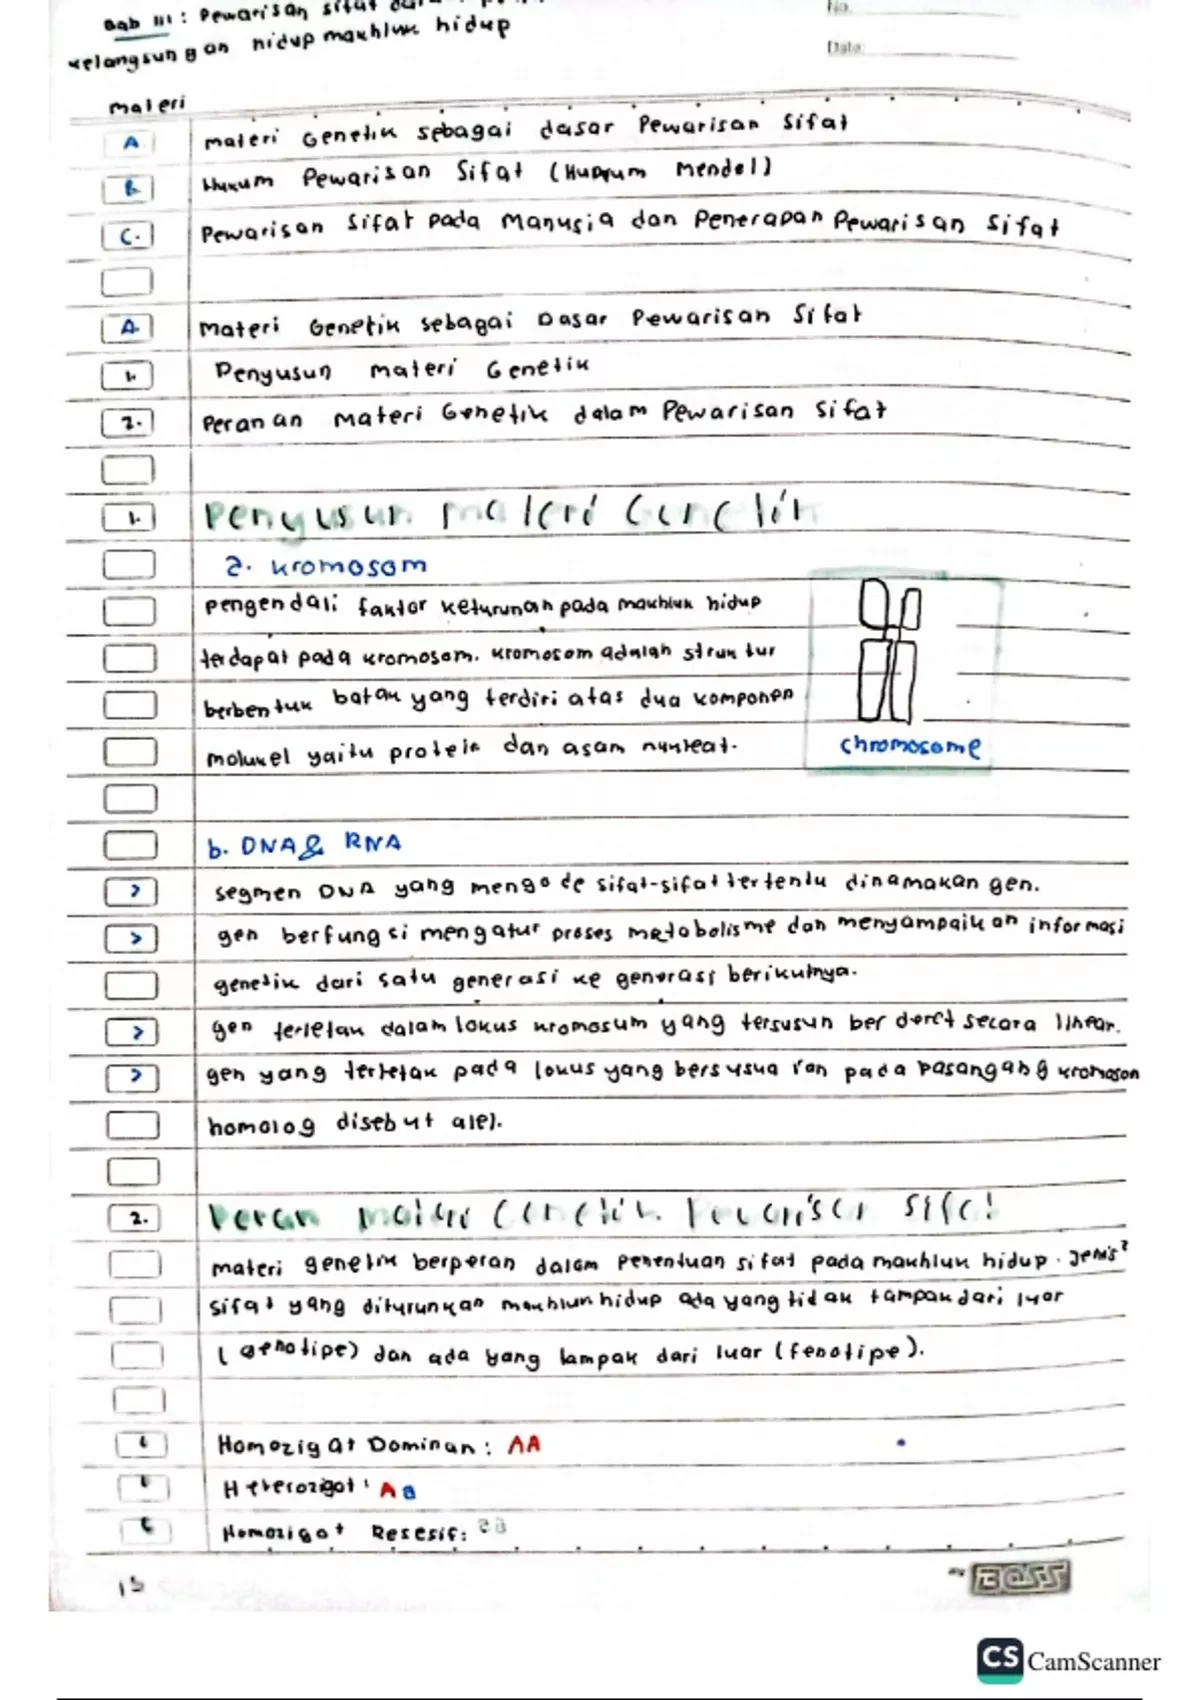 Bab III : Pewarisan sifat
kelangsungan hidup makhluk hidup
No.
Date:
materi
A materi Genetik sebagai dasar Pewarisan Sifat
B. Hukum Pewarisan Sifat (Hukum Mendel)
C. Pewarisan Sifat pada Manusia dan Penerapan Pewarisan Sifat
A. Materi Genetik sebagai Dasar Pewarisan Sifat
1. Penyusun materi Genetik
2. Peranan materi Genetik dalam Pewarisan Sifat
1. Penyusun materi Genetik
a. kromosom
pengendali faktor keturunan pada makhluk hidup
terdapat pada kromosom. kromosom adalah struktur
berbentuk batak yang terdiri atas dua komponen
molukel yaitu protein dan asam nukleat.
chromosome
b. DNA & RNA
> segmen DNA yang mengode sifat-sifat tertentu dinamakan gen.
> gen berfungsi mengatur proses metabolisme dan menyampaikan informasi
genetik dari satu generasi ke generasi berikutnya.
> gen terletak dalam lokus kromosum yang tersusun berderet secara linear.
> gen yang terletak pada lokus yang bersusuaian pada pasangang kromoson
homolog disebut alel.
2. Peran materi Genetik Pewarisan Sifat
materi genetik berperan dalam penentuan sifat pada makhluk hidup. Jenis²
sifat yang diturunkan makhluk hidup ada yang tidak tampak dari luar
(genotipe) dan ada yang tampak dari luar (fenotipe).
Homozigat Dominan : AA
Heterozigot : Aa
Homozigot Resesif:
15
my BOSS
CS CamScanner